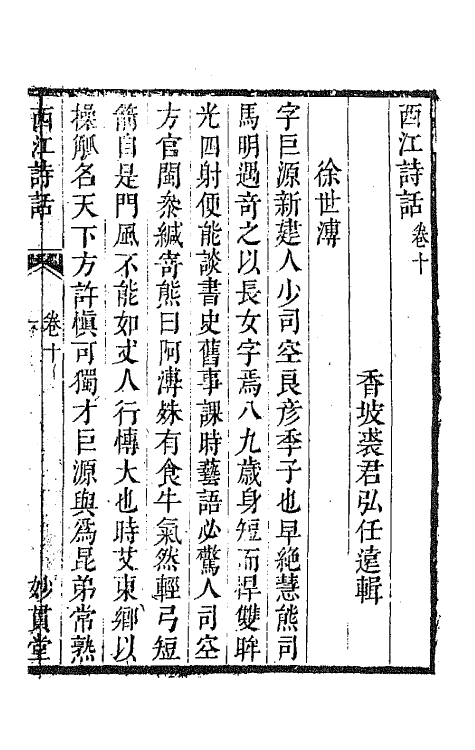 西江詩話 卷十
香坡裘君弘任遠輯
徐世溥
字巨源新建人少司空良彦季子也早絶慧熊司
馬明遇奇之以長女字焉八九歲身短而悍雙眸
光四射便能談書史舊事課時藝語必驚人司空
方官閩泰緘寄熊曰阿溥姝有食牛氣然輕弓短
箭自是門風不能如丈人行愽大也時艾東鄉以
操觚名天下方許愼可獨才巨源與爲昆弟常熟
西江詩話 卷十 一 妙貫堂